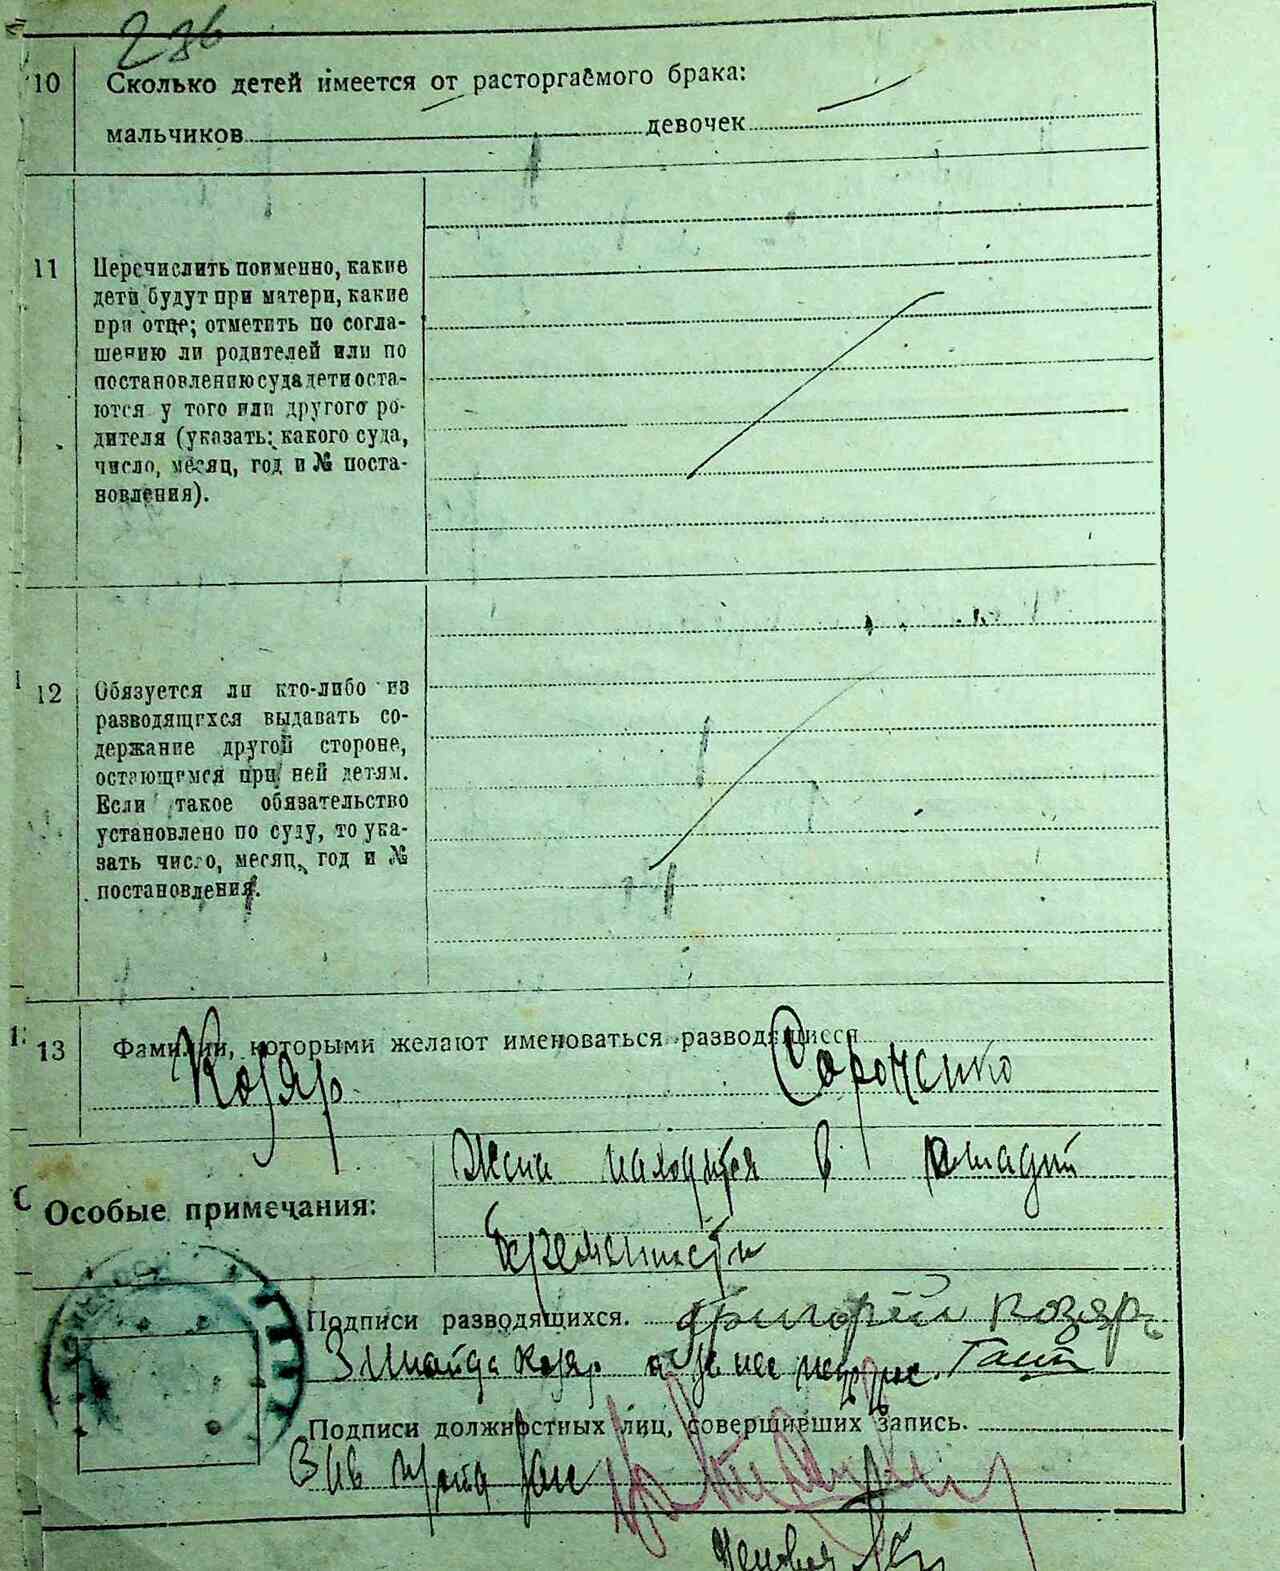 236
10 Сколько детей имеется от расторгаемого брака:
мальчиков — девочек —
11 Перечислить поименно, какие
дети будут при матери, какие
при отце; отметить по согла-
шению ли родителей или по
постановлению суда дети оста-
ются у того или другого ро-
дителя (указать: какого суда,
число, месяц, год и № поста-
новления).
12 Обязуется ли кто-либо из
разводящихся выдавать со-
держание другой стороне,
остающимся при ней детям.
Если такое обязательство
установлено по суду, то ука-
зать число, месяц, год и №
постановления.
13 Фамилии, которыми желают именоваться разводящиеся
Козяр Сороченко
Особые примечания:
Жена находится в
беременности
Подписи разводящихся. Григорий Козяр
Зинаида Козяр а за нее
Подписи должностных лиц, совершивших запись.